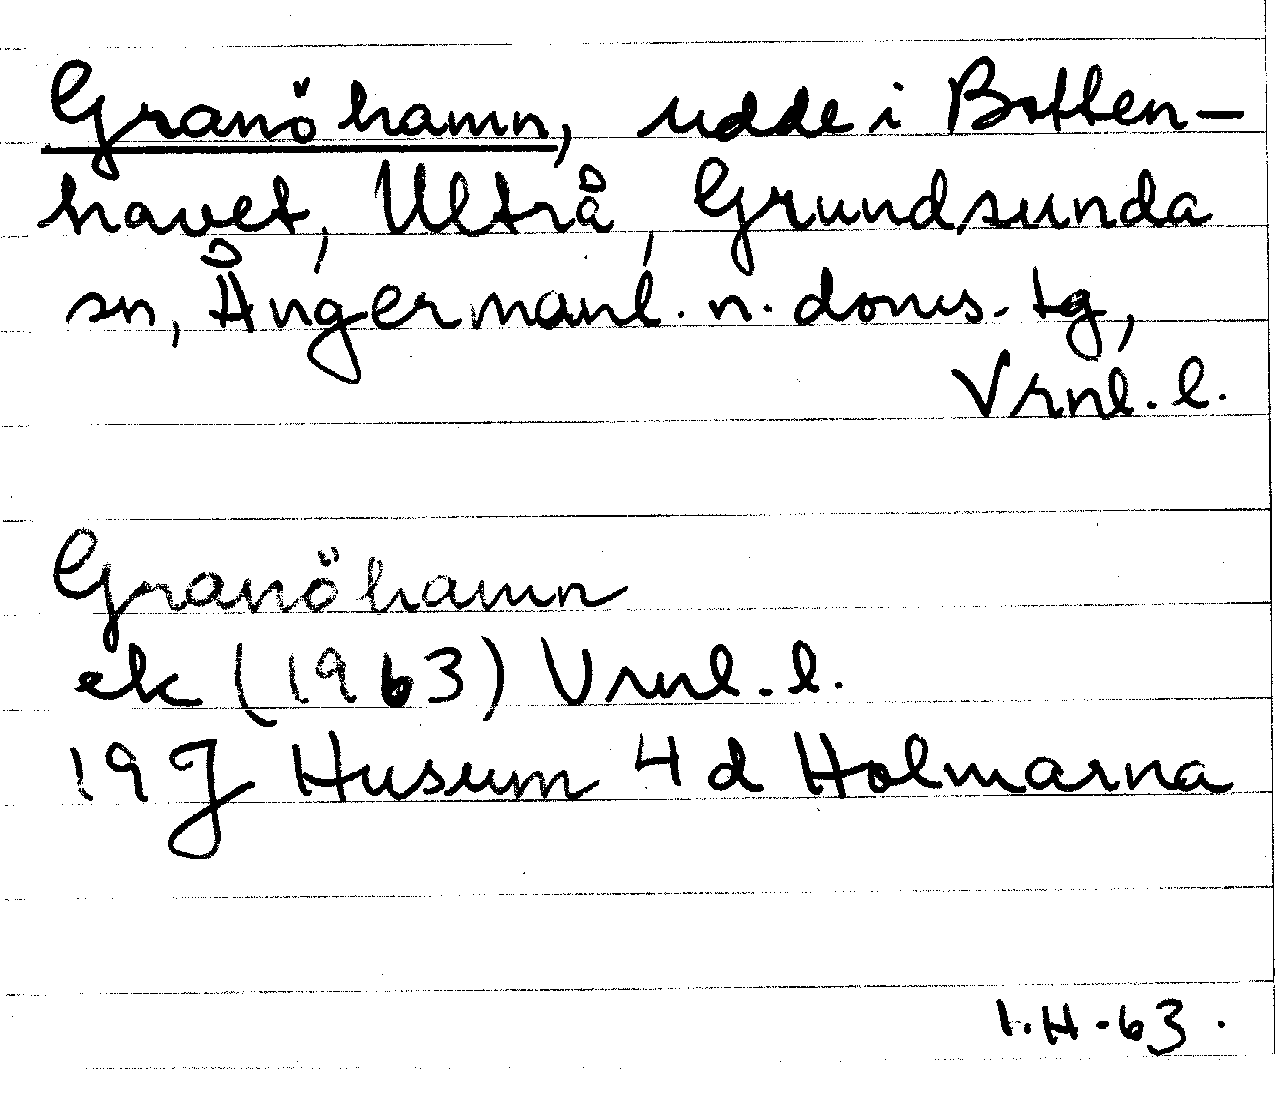 Granöhamn, udde i Botten-
havet, Ultrå, Grundsunda
sn, Ångermanl. n. doms. tg,
Vrnl. l.
Granöhamn
ek (1963) Vrnl. l.
19J Husum 4d Holmarna
I.H-63.